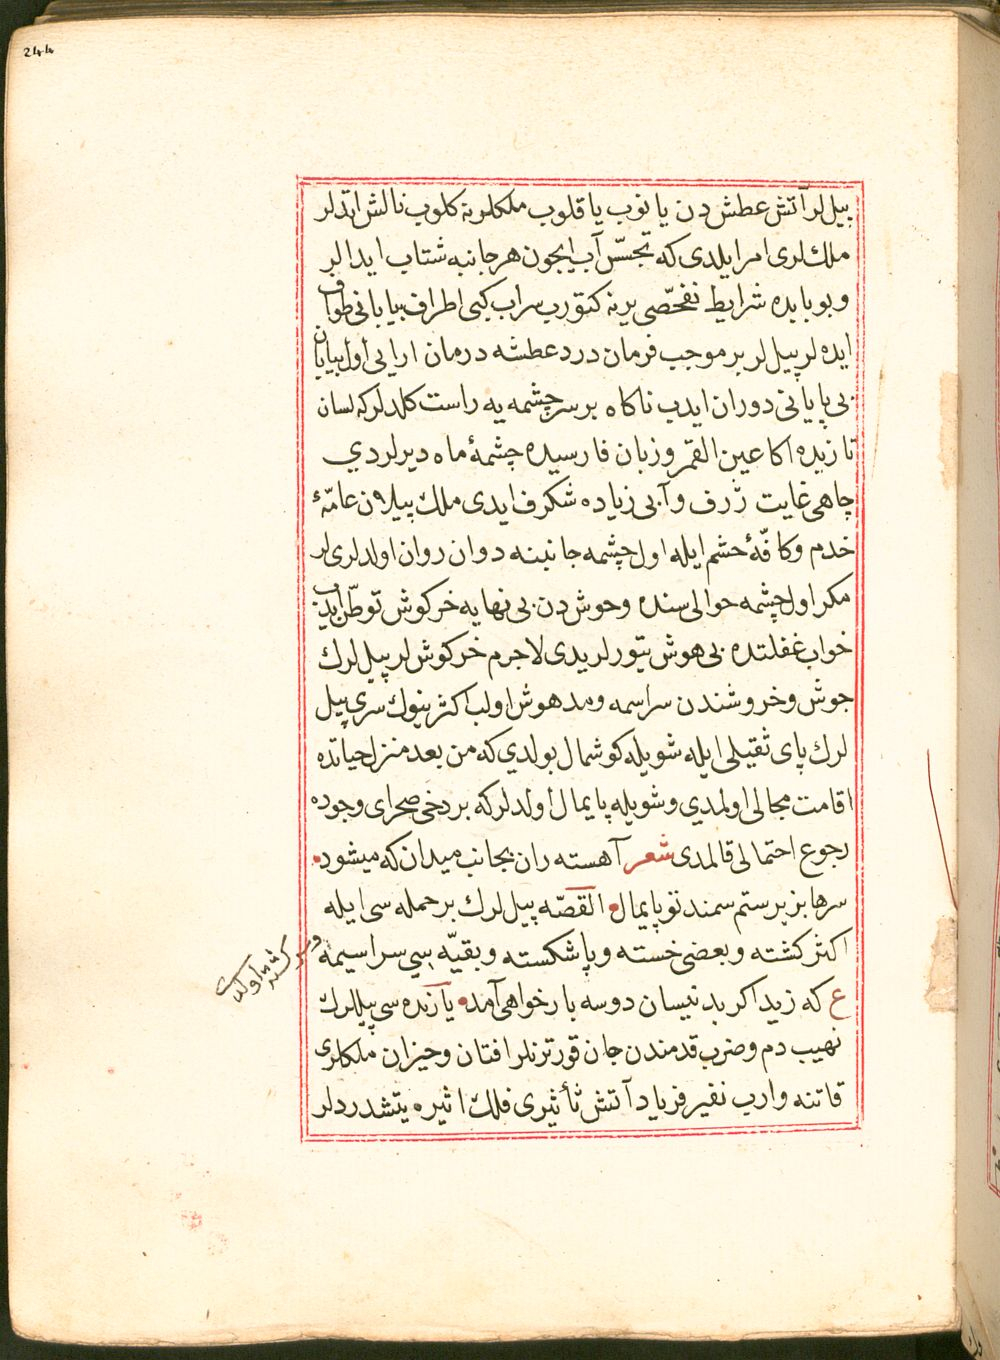 244
پیل لر آتش عطش دن یا نوب یا قلوب ملکلرینه کلوب نالش ایتدلر
ملك لری امر ایلدی که تجسّس آب ایچون هر جانبه شتاب ایدالر
و بو بابده شرایط تفحّصی یرینه کتورب سراب کبی اطراف بیابانی طواف
ایده لر پیل لر بر موجب فرمان درد عطشه درمان ارایی اول بیابان
بی پایانی دوران ایدب ناکاه بر سر چشمه یه راست کلدلر که لسان
تازیده اکا عین القمر و زبان فارسیده چشمهٔ ماه دیرلردی
چاهی غایت ژرف و آبی زیاده شکرف ایدی ملك پیلان عامّهٔ
خدم و کافّهٔ حشم ایله اول چشمه جانبنه دوان روان اولدلری لر
مکر اول چشمه حوالی سنده وحوش دن بی نهایه خرکوش توطّن ایدب
خواب غفلتده بی هوش یتورلریدی لاجرم خرکوش لر پیل لرك
جوش و خروشندن سراسمه و مدهوش اولب اکثرینوك سری پیل
لرك پای ثقیلی ایله شویله کوشمال بولدی که من بعد منزل حیاتده
اقامت مجالی اولمدی و شویله پایمال اولدلر که بر دخی صحرای وجوده
رجوع احتمالی قالمدی شعر آهسته ران بجانب میدان که میشود
سرها بزیر ستم سمند تو پایمال القصّه پیل لرك بر حمله سی ایله
اکثر کشته و بعضی خسته و پا شکسته و بقیّه سی سراسیمه
و سرکشته اولب
ع که زید اکر بدینسان دو سه بار خواهی آمد یارنده سی پیللرك
نهیب دم و ضرب قدمندن جان قورترنلر افتان و خیزان ملکلری
قاتنه وارب نفیر فریاد آتش تأثیری فلك اثیره یتشدردلر